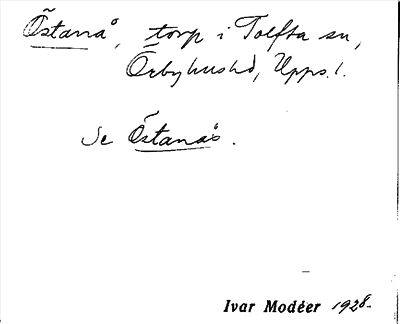 Östanå, torp i Tolfta sn,
Örbyhushd, Upps. l.
Se Östanås.
Ivar Modéer 1928.